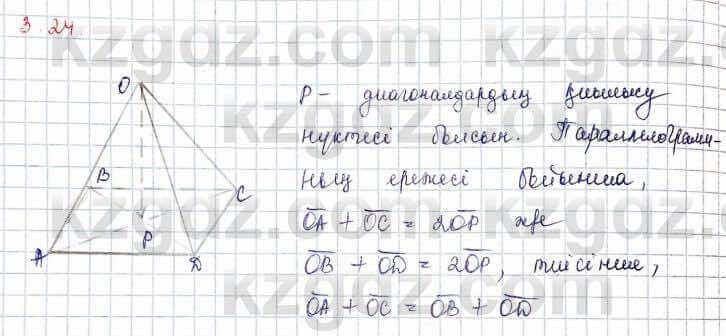 3.24
kzgdz.com
O
B
C
A
P
D
P - диагоналдардың қиылысу
нүктесі болсын. Параллелограмм-
ның ережесі бойынша,
OA + OC = 2OP және
OB + OD = 2OP, тиісінше,
OA + OC = OB + OD